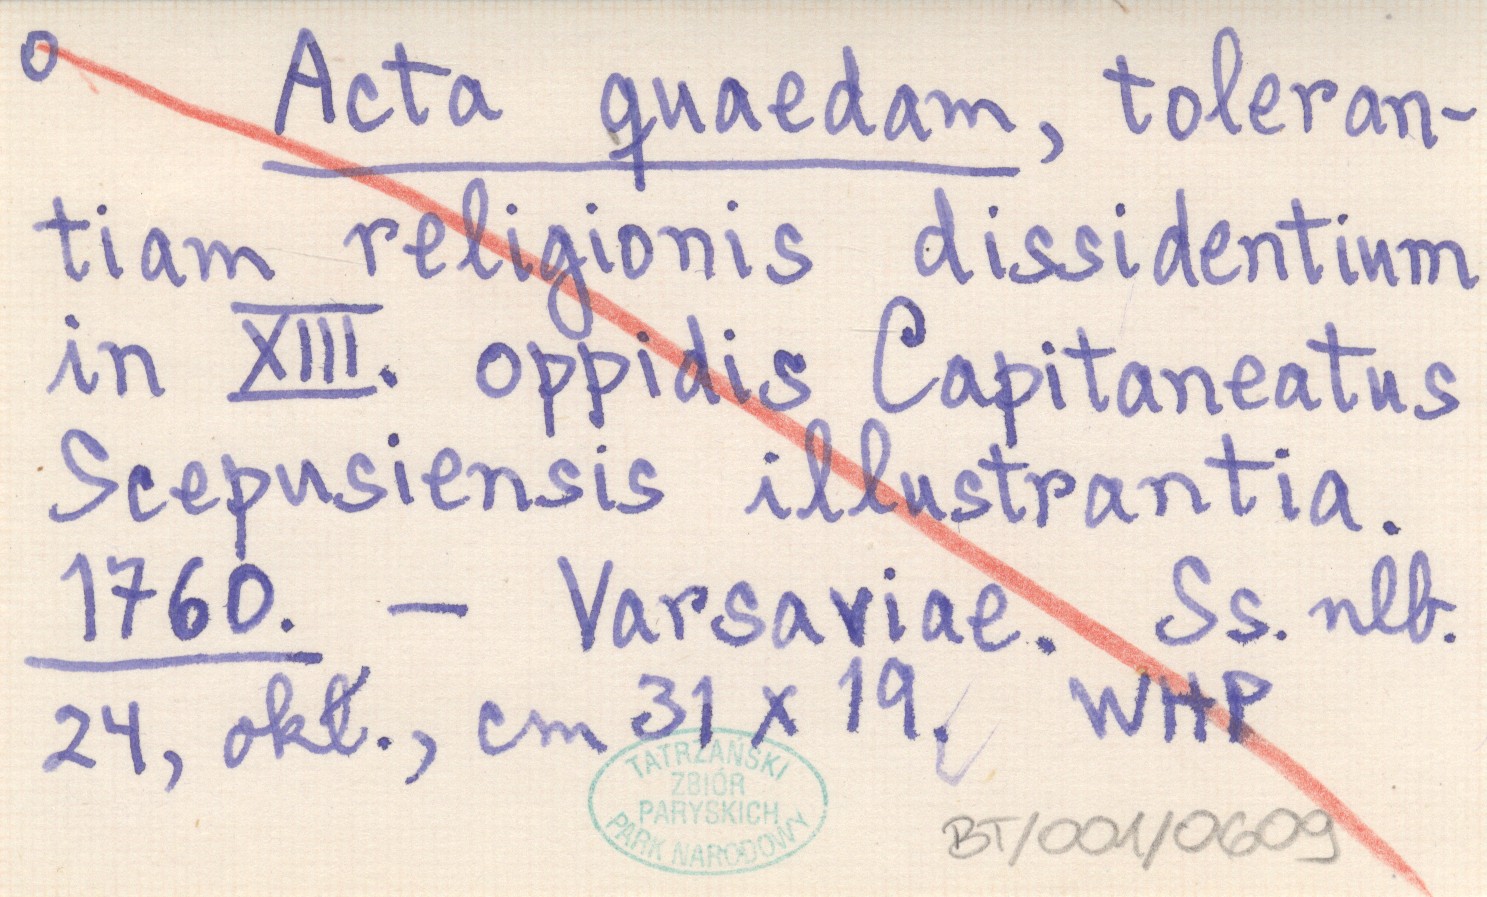 o Acta quaedam, toleran-
tiam religionis dissidentium
in XIII. oppidis Capitaneatus
Scepusiensis illustrantia.
1760. — Varsaviae. Ss. nlb.
24, okł., cm 31 x 19. WHP
TATRZAŃSKI
ZBIÓR
PARYSKICH
PARK NARODOWY
BT/001/0609